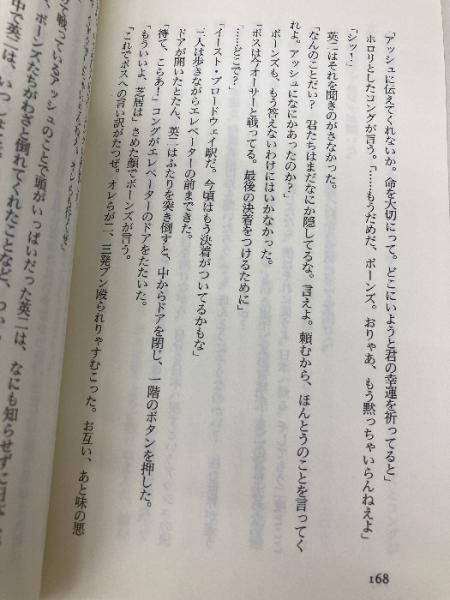 「アッシュに伝えてくれないか。命を大切にって。どこにいようと君の幸運を祈ってると」
ホロリとしたコングが言う。「……もうだめだ、ボーンズ。おりゃあ、もう黙っちゃいらんねえよ」
「シッ！」
英二はそれを聞きのがさなかった。
「なんのことだい？　君たちはまだなにか隠してるな。言えよ。頼むから、ほんとうのことを言ってく
れよ。アッシュになにかあったのか？」
ボーンズも、もう答えないわけにはいかなかった。
「ボスは今オーサーと戦ってる。最後の決着をつけるために」
「……どこで？」
「イースト・ブロードウェイ駅だ。今頃はもう決着がついてるかもな」
三人は歩きながらエレベーターの前まできた。
ドアが開いたとたん、英二はふたりを突き倒すと、中からドアを閉じ、一階のボタンを押した。
「待て、こらあ！」コングがエレベーターのドアをたたいた。
「もういいよ、芝居は」さめた顔でボーンズが言う。
「これでボスへの言い訳がたつぜ。オレらが二、三発ブン殴られりゃすむこった。お互い、あと味の悪
戦っているアッシュのことで頭がいっぱいだった英二は、なにも知らせずに日本
ボーンズたちがわざと倒れてくれたことなど、
中で英二は、
168